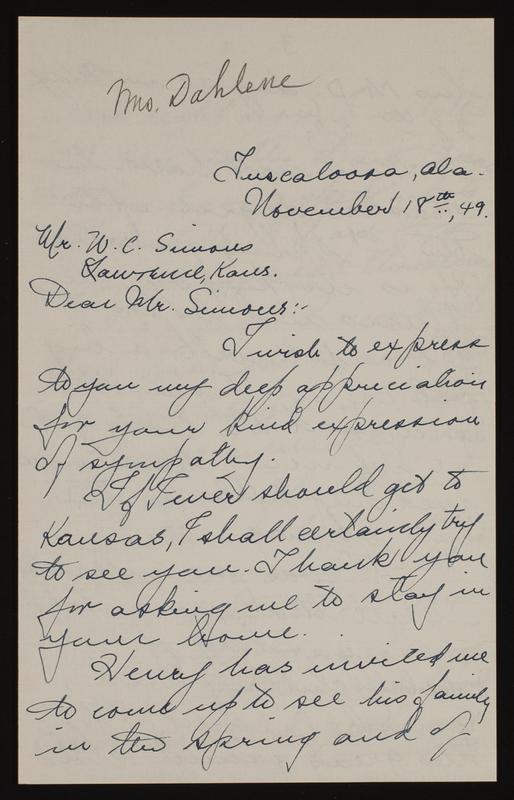 Mrs. Dahlene
Tuscaloosa, Ala.
November 18th, 49.
Mr. W. C. Simons
Lawrence, Kans.
Dear Mr. Simons:-
I wish to express
to you my deep appreciation
for your kind expression
of sympathy.
If I ever should get to
Kansas, I shall certainly try
to see you. Thank you
for asking me to stay in
your home.
Henry has invited me
to come up to see his family
in the spring and of